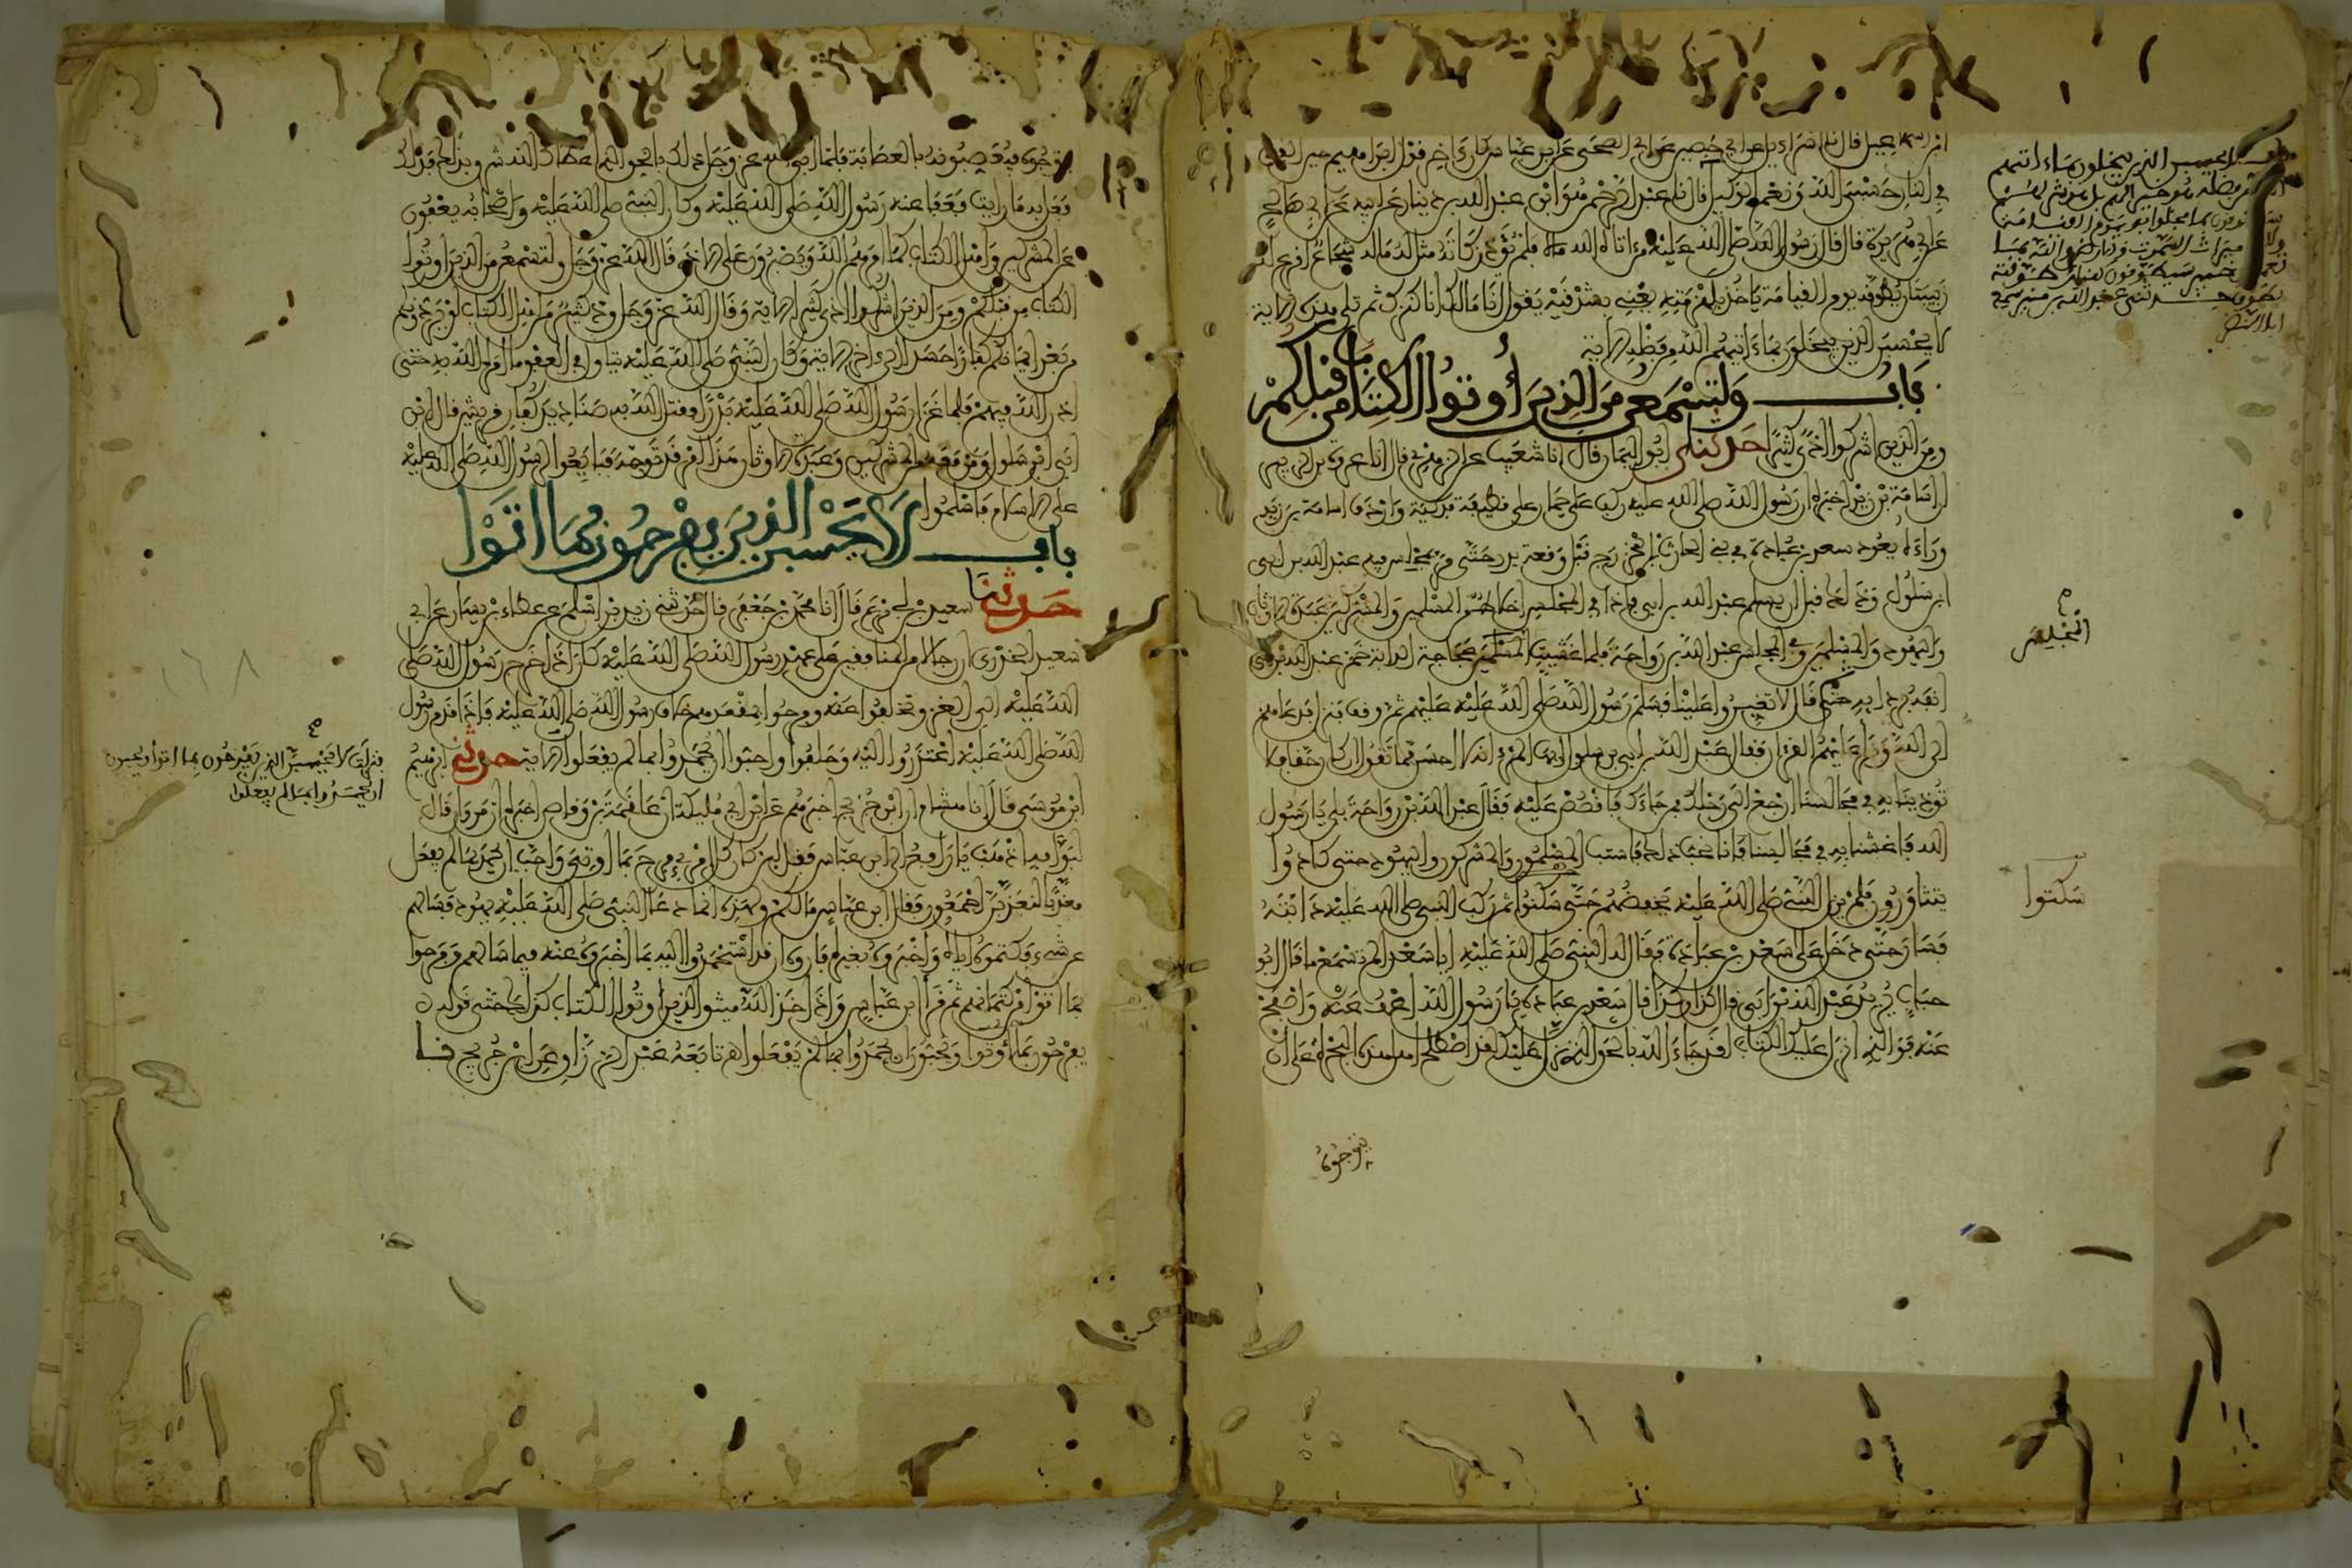 في النار حسبي الله ونعم الوكيل قال نا عبد الرحمن هو ابن عبد الله بن دينار عن ابيه عن ابي صالح
عن ابي هريرة قال قال رسول الله صلى الله عليه من اتاه الله مالا فلم يؤد زكاته مثل له ماله شجاعا اقرع له
زبيبتان يطوقه يوم القيامة ياخذ بلهزمتيه يعني بشدقيه يقول انا مالك انا كنزك ثم تلى هذه الاية
لا يحسبن الذين يبخلون بما ءاتيهم الله من فضله الاية
باب ولتسمعن من الذين أوتوا الكتاب من قبلكم
ومن الذين اشركوا اذى كثيرا حدثنا ابو اليمان قال انا شعيب عن الزهري قال انا عروة بن الزبير
ان اسامة بن زيد اخبره ان رسول الله صلى الله عليه ركب على حمار على قطيفة فدكية واردف اسامة بن زيد
وراءه يعود سعد بن عبادة في بني الحارث بن الخزرج قبل وقعة بدر حتى مر بمجلس فيه عبد الله بن ابي
ابن سلول وذلك قبل ان يسلم عبد الله بن ابي فاذا في المجلس اخلاط من المسلمين والمشركين عبدة الاوثان
واليهود والمسلمين وفي المجلس عبد الله بن رواحة فلما غشيت المجلس عجاجة الدابة خمر عبد الله بن ابي
انفه بردايه ثم قال لا تغبروا علينا فسلم رسول الله صلى الله عليه عليهم ثم وقف فنزل فدعاهم
الى الله وقرا عليهم القرءان فقال عبد الله بن ابي بن سلول ايها المرء انه لا احسن مما تقول ان كان حقا فلا
تؤذينا به في مجالسنا ارجع الى رحلك فمن جاءك فاقصص عليه فقال عبد الله بن رواحة بلى يا رسول
الله فاغشنا به في مجالسنا فانا نحب ذلك فاستب المسلمون والمشركون واليهود حتى كادوا
يتثاورون فلم يزل النبي صلى الله عليه يخفضهم حتى سكنوا ثم ركب النبي صلى الله عليه دابته
فسار حتى دخل على سعد بن عبادة فقال له النبي صلى الله عليه ايا سعد الم تسمع ما قال ابو
حباب يريد عبد الله بن ابي قال كذا وكذا قال سعد بن عبادة يا رسول الله اعف عنه واصفح
عنه فوالذي انزل عليك الكتاب لقد جاء الله بالحق الذي نزل عليك لقد اصطلح اهل هذه البحرة على ان
يتوجوه
المجلس
سكتوا
يتوجوه فيعصبونه بالعصابة فلما ابى الله عز وجل ذلك بالحق الذي اعطاك الله شرق بذلك فذلك
فعل به ما رايت فعفا عنه رسول الله صلى الله عليه وكان النبي صلى الله عليه واصحابه يعفون
عن المشركين واهل الكتاب كما امرهم الله ويصبرون على الاذى قال الله عز وجل ولتسمعن من الذين أوتوا
الكتاب من قبلكم ومن الذين اشركوا اذى كثيرا الاية وقال الله عز وجل ود كثير من اهل الكتاب لو يردونكم
من بعد ايمانكم كفارا حسدا الى اخر الاية وكان النبي صلى الله عليه يتاول في العفو ما امره الله به حتى
اذن الله فيهم فلما غزا رسول الله صلى الله عليه بدرا وقتل الله به صناديد كفار قريش قال ابن
ابي ابن سلول ومن معه من المشركين وعبدة الاوثان هذا امر قد توجه فبايعوا الرسول صلى الله عليه
على الاسلام فاسلموا
باب لا يحسبن الذين يفرحون بما اتوا
حدثنا سعيد بن ابي مريم قال انا محمد بن جعفر قال حدثني زيد بن اسلم عن عطاء بن يسار عن ابي
سعيد الخدري ان رجالا من المنافقين على عهد رسول الله صلى الله عليه كان اذا خرج رسول الله صلى
الله عليه الى الغزو تخلفوا عنه وفرحوا بمقعدهم خلاف رسول الله صلى الله عليه فاذا قدم رسول
الله صلى الله عليه اعتذروا اليه وحلفوا واحبوا ان يحمدوا بما لم يفعلوا الاية حدثني ابراهيم
ابن موسى قال انا هشام ان ابن جريج اخبرهم عن ابن ابي مليكة ان علقمة بن وقاص اخبره ان مروان قال
لبوابه اذهب يا رافع الى ابن عباس فقل لئن كان كل امرئ فرح بما اوتي واحب ان يحمد بما لم يفعل
معذبا لنعذبن اجمعون فقال ابن عباس ما لكم ولهذه انما دعا النبي صلى الله عليه يهود فسالهم
عن شيء فكتموه اياه واخبروه بغيره فاروه ان قد استحمدوا اليه بما اخبروه عنه فيما سالهم وفرحوا
بما اتوا من كتمانهم ثم قرأ ابن عباس واذ اخذ الله ميثاق الذين أوتوا الكتاب كذلك حتى قوله
يفرحون بما أوتوا ويحبون ان يحمدوا بما لم يفعلوا تابعه عبد الرزاق عن ابن جريج نـا
فنزلت لا يحسبن الذين يفرحون بما اتوا ويحبون
ان يحمدوا بما لم يفعلوا
١٦٨